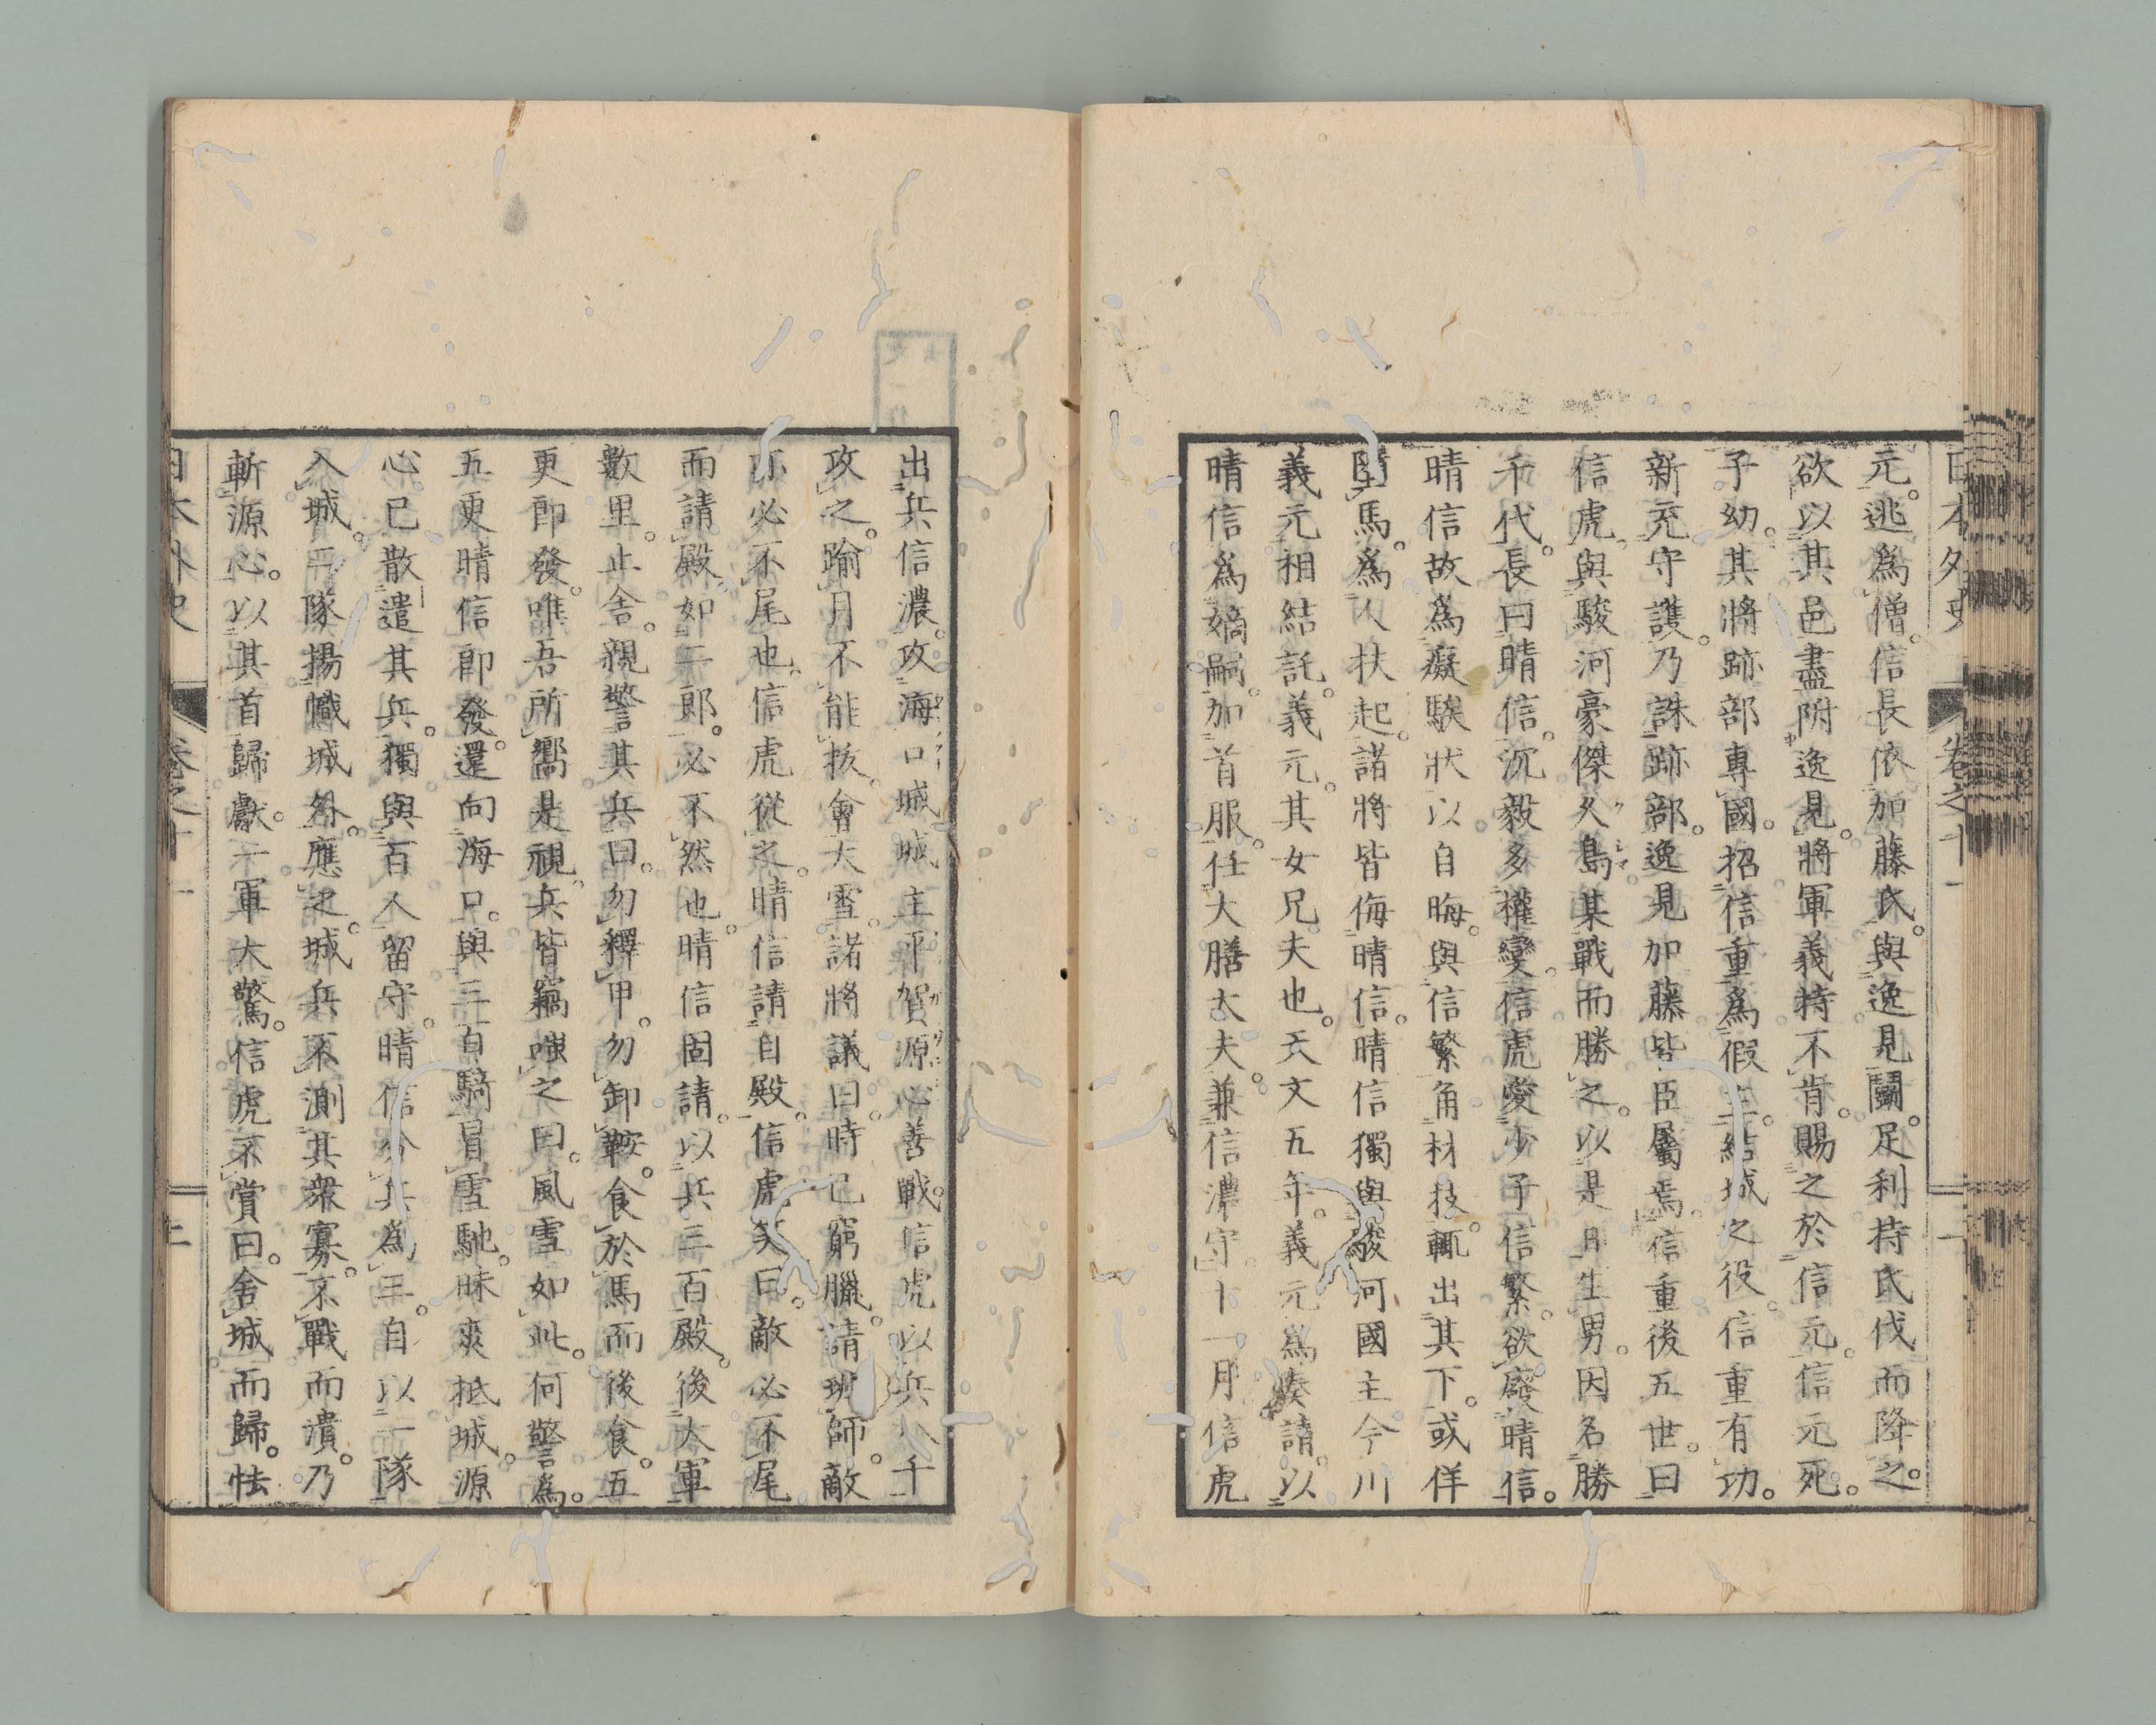 日本外史 卷之十一
元。逃爲僧。信長依加藤氏。與逸見鬭。足利持氏伐而降之。
欲以其邑盡附逸見。將軍義持不肯。賜之於信元。信元死。
子幼。其將跡部專國。招信重爲假主。結城之役。信重有功。
新充守護。乃誅跡部。逸見加藤皆臣屬焉。信重後五世。曰
信虎。與駿河豪傑久島某戰而勝之。以是日生男。因名勝
千代。長曰晴信。沉毅多權變。信虎愛少子信繁。欲廢晴信。
晴信故爲癡騃狀以自晦。與信繁角材技。輒出其下。或佯
墮馬。爲人扶起。諸將皆侮晴信。晴信獨與駿河國主今川
義元相結託。義元。其女兄夫也。天文五年。義元爲奏請。以
晴信爲嫡嗣。加首服。任大膳大夫。兼信濃守。十一月信虎
出兵信濃。攻海口城。城主平賀源心善戰。信虎以兵八千
攻之。踰月不能拔。會大雪。諸將議曰。時已窮臘。請班師。敵
亦必不尾也。信虎從之。晴信請自殿。信虎笑曰。敵必不尾
而請殿。如二郎。必不然也。晴信固請。以兵三百殿。後大軍
數里。止舍。親警其兵曰。勿釋甲。勿卸鞍。食於馬而後食。五
更即發。唯吾所嚮是視。兵皆竊嗤之曰。風雪如此。何警爲。
五更晴信即發。還向海口。與三百騎冒雪馳。昧爽抵城。源
心已散遣其兵。獨與百人留守。晴信分兵爲三。自以一隊
入城。二隊揚幟城外。應之。城兵不測其衆寡。不戰而潰。乃
斬源心。以其首歸獻。一軍大驚。信虎不賞曰。舍城而歸。怯
日本外史 卷之十一